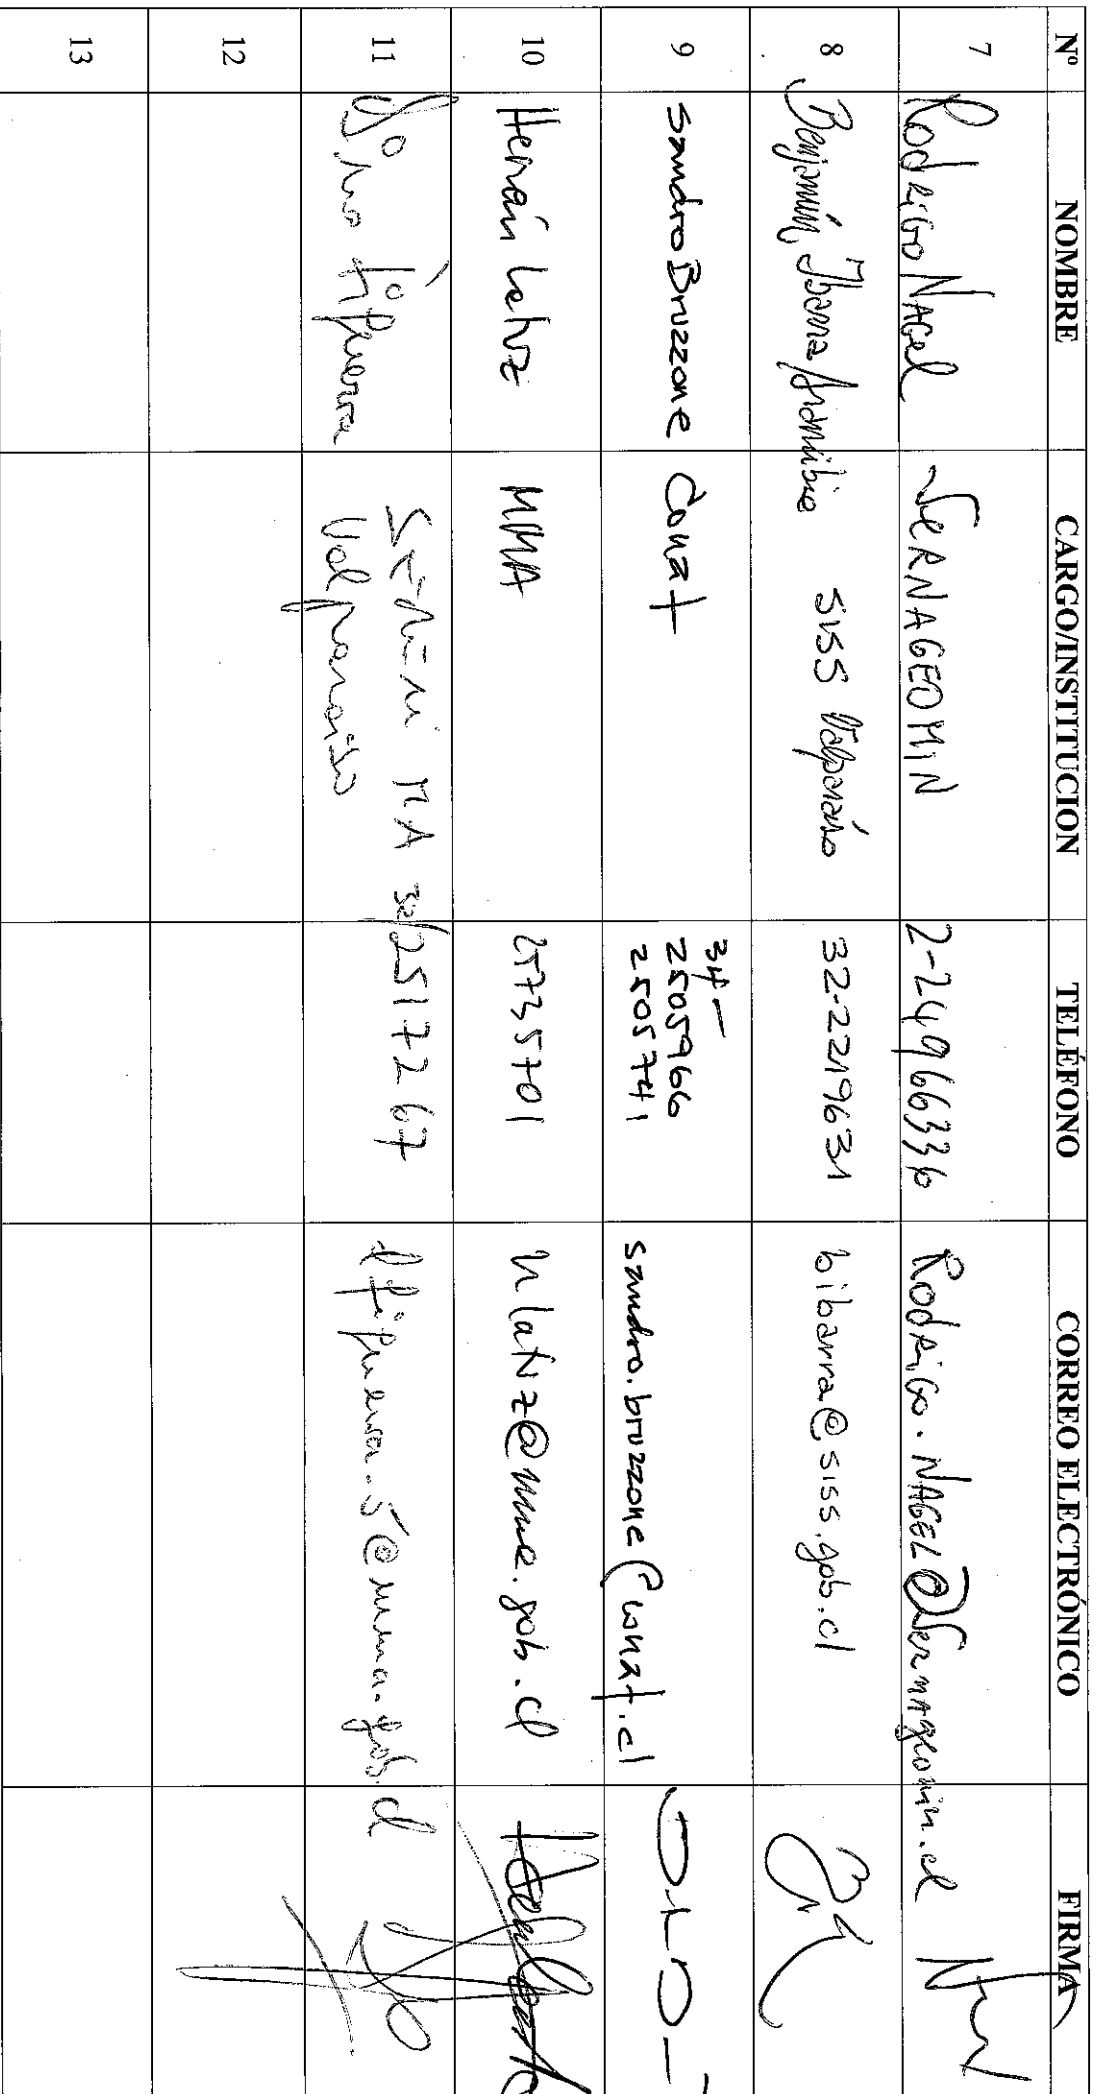 Nº NOMBRE CARGO/INSTITUCION TELÉFONO CORREO ELECTRÓNICO FIRMA
7 Rodrigo Nagel SERNAGEOMIN 2-24966336 Rodrigo.NAGEL@Sernageomin.cl
8 Benjamín Ibarra SISS Valparaíso 32-2219631 bibarra@siss.gob.cl
9 Sandro Bruzzone Conaf 34-
2505966
2505741 sandro.bruzzone@conaf.cl
10 Hernán Latuz MMA 25735701 hlatuz@mma.gob.cl
11 Figueroa MA
Valparaíso 32/2517267 @mma.gob.cl
12
13